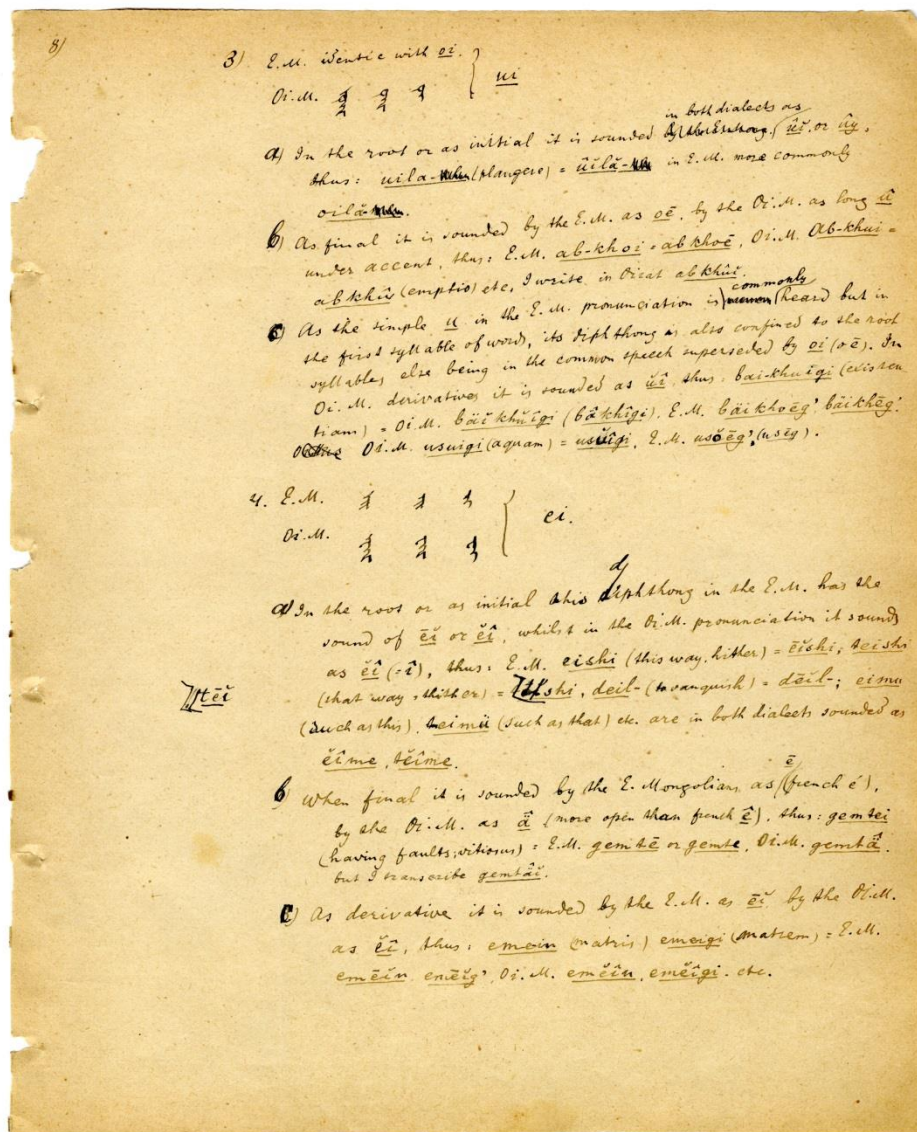 8)
3) E.M. identic with oi. } ui
Oi.M.
a) In the root or as initial it is sounded in both dialects as ûĭ or ûy,
thus: uila- (plangere) = ûĭlă- in E.M. more commonly
oilă-
b) As final it is sounded by the E.M. as oē, by the Oi.M. as long û
under accent, thus: E.M. ab-khoi = abkhoē, Oi.M. Ab-khui =
abkhû (emptio) etc, I write in Oirat abkhûĭ.
c) As the simple u in the E.M. pronunciation is commonly heard but in
the first syllable of word, its diphthong is also confined to the root
syllable, else being in the common speech superseded by oi (oē). In
Oi.M. derivatives it is sounded as ŭî, thus: bai-khuigi (existen
tiam) = Oi.M. bäĭkhŭîgi (bäkhîgi), E.M. bäikhoēg', bäikhēg'.
Oi.M. usuigi (aquam) = usŭîgi, E.M. usŏēg' (usēg).
4. E.M. } ei.
Oi.M.
a) In the root or as initial this diphthong in the E.M. has the
sound of ēĭ or ĕî, whilst in the Oi.M. pronunciation it sounds
as ĕî (=î), thus: E.M. eishi (this way, hither) = ēĭshi, teishi
tēĭ
(that way, thither) = shi, deil- (to vanquish) = dēĭl-; eimü
(such as this), teimü (such as that) etc. are in both dialects sounded as
ĕîme, tĕîme.
b) When final it is sounded by the E. Mongolians as ē (french é),
by the Oi.M. as ä̂ (more open than french ê), thus: gemtei
(having faults; vitiosus) = E.M. gemtē or gemte, Oi.M. gemtä̂.
but I transcribe gemtä̂ĭ.
c) As derivative it is sounded by the E.M. as ēĭ, by the Oi.M.
as ĕî, thus: emein (matris) emeigi (matrem) = E.M.
emēĭn, emēĭg', Oi.M. emĕîn, emĕîgi. etc.